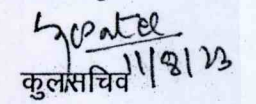 11/8/23
कुलसचिव